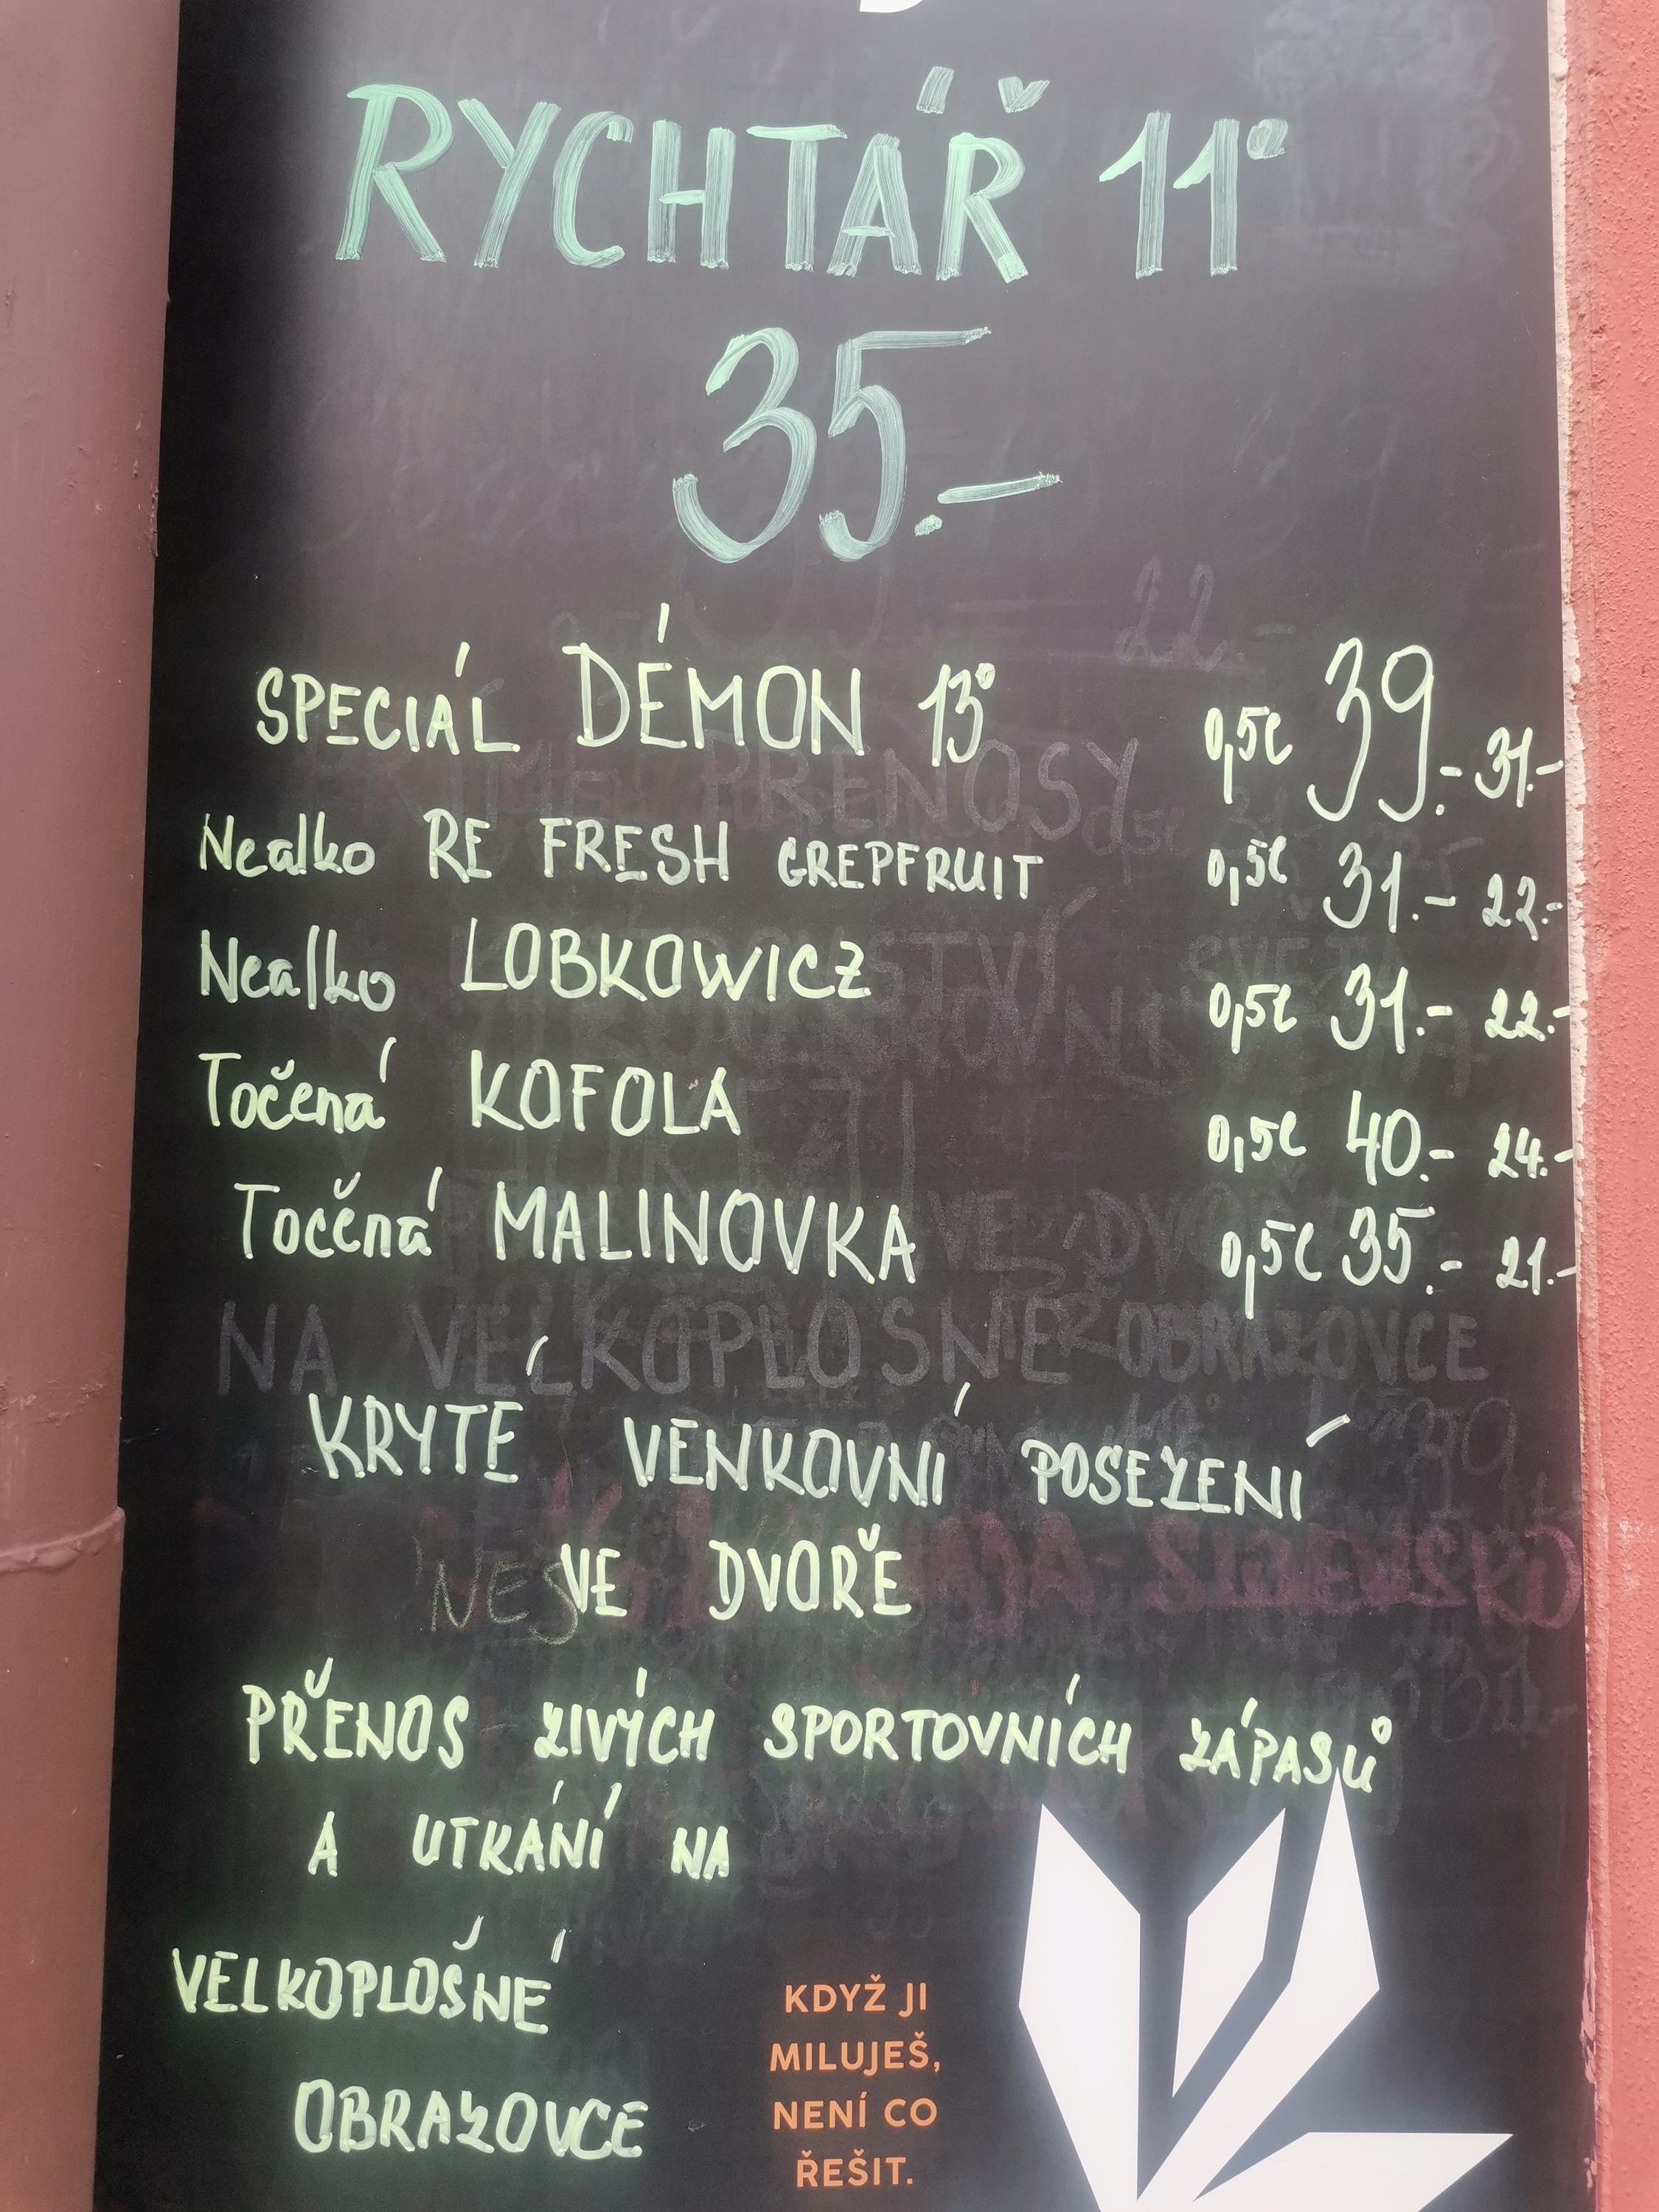 RYCHTÁŘ 11°
35.-
SPECIÁL DÉMON 13° 0,5l 39.- 31.-
Nealko RE FRESH GREPFRUIT 0,5l 31.- 22.-
Nealko LOBKOWICZ 0,5l 31.- 22.-
Točená KOFOLA 0,5l 40.- 24.-
Točená MALINOVKA 0,5l 35.- 21.-
NA VELKOPLOŠNÉ OBRAZOVCE
KRYTÉ VENKOVNÍ POSEZENÍ
VE DVOŘE
PŘENOS ZIVÝCH SPORTOVNÍCH ZÁPASŮ
A UTKÁNÍ NA
VELKOPLOŠNÉ
OBRAZOVCE
KDYŽ JI
MILUJEŠ,
NENÍ CO
ŘEŠIT.